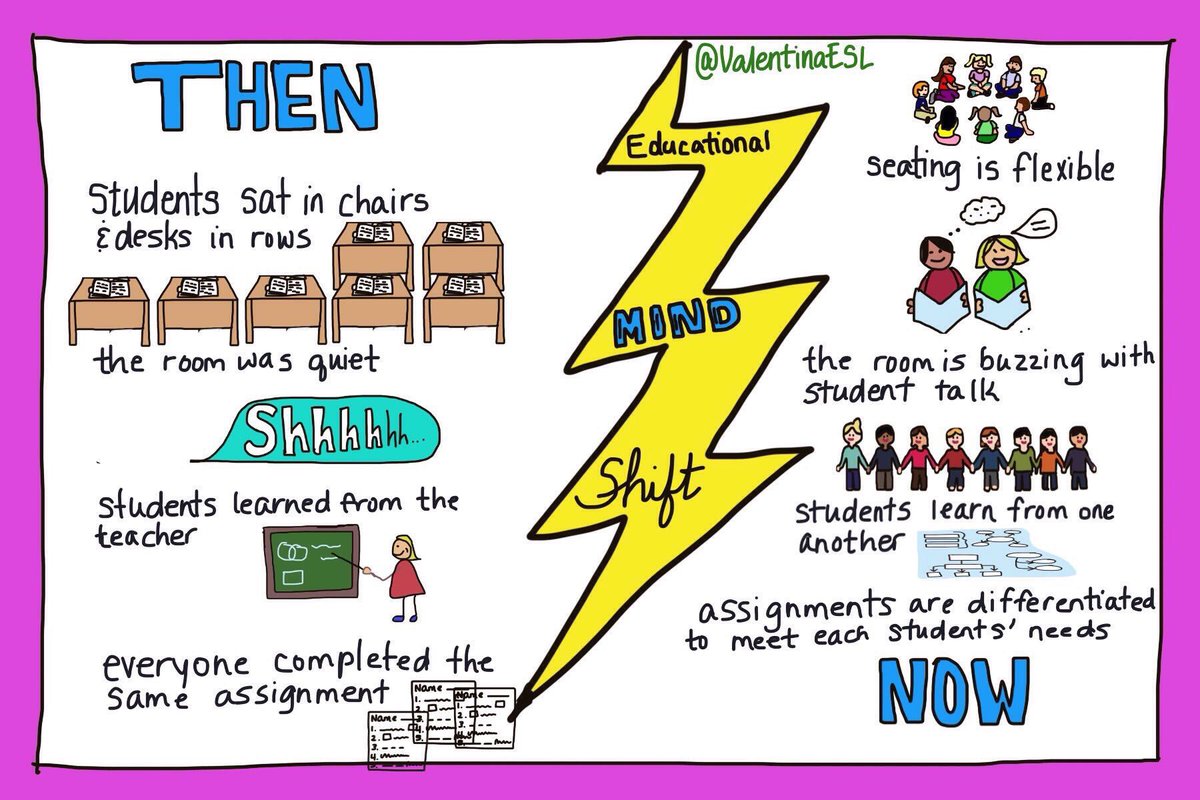 THEN
Students sat in chairs
& desks in rows
the room was quiet
Shhhhhh...
students learned from the
teacher
everyone completed the
same assignment
Name
1.
2.
3.
4.
5.
Name
1.
2.
3.
4.
5.
Name
1.
2.
3.
4.
5.
@ValentinaESL
Educational
MIND
Shift
seating is flexible
the room is buzzing with
student talk
students learn from one
another
assignments are differentiated
to meet each students' needs
NOW